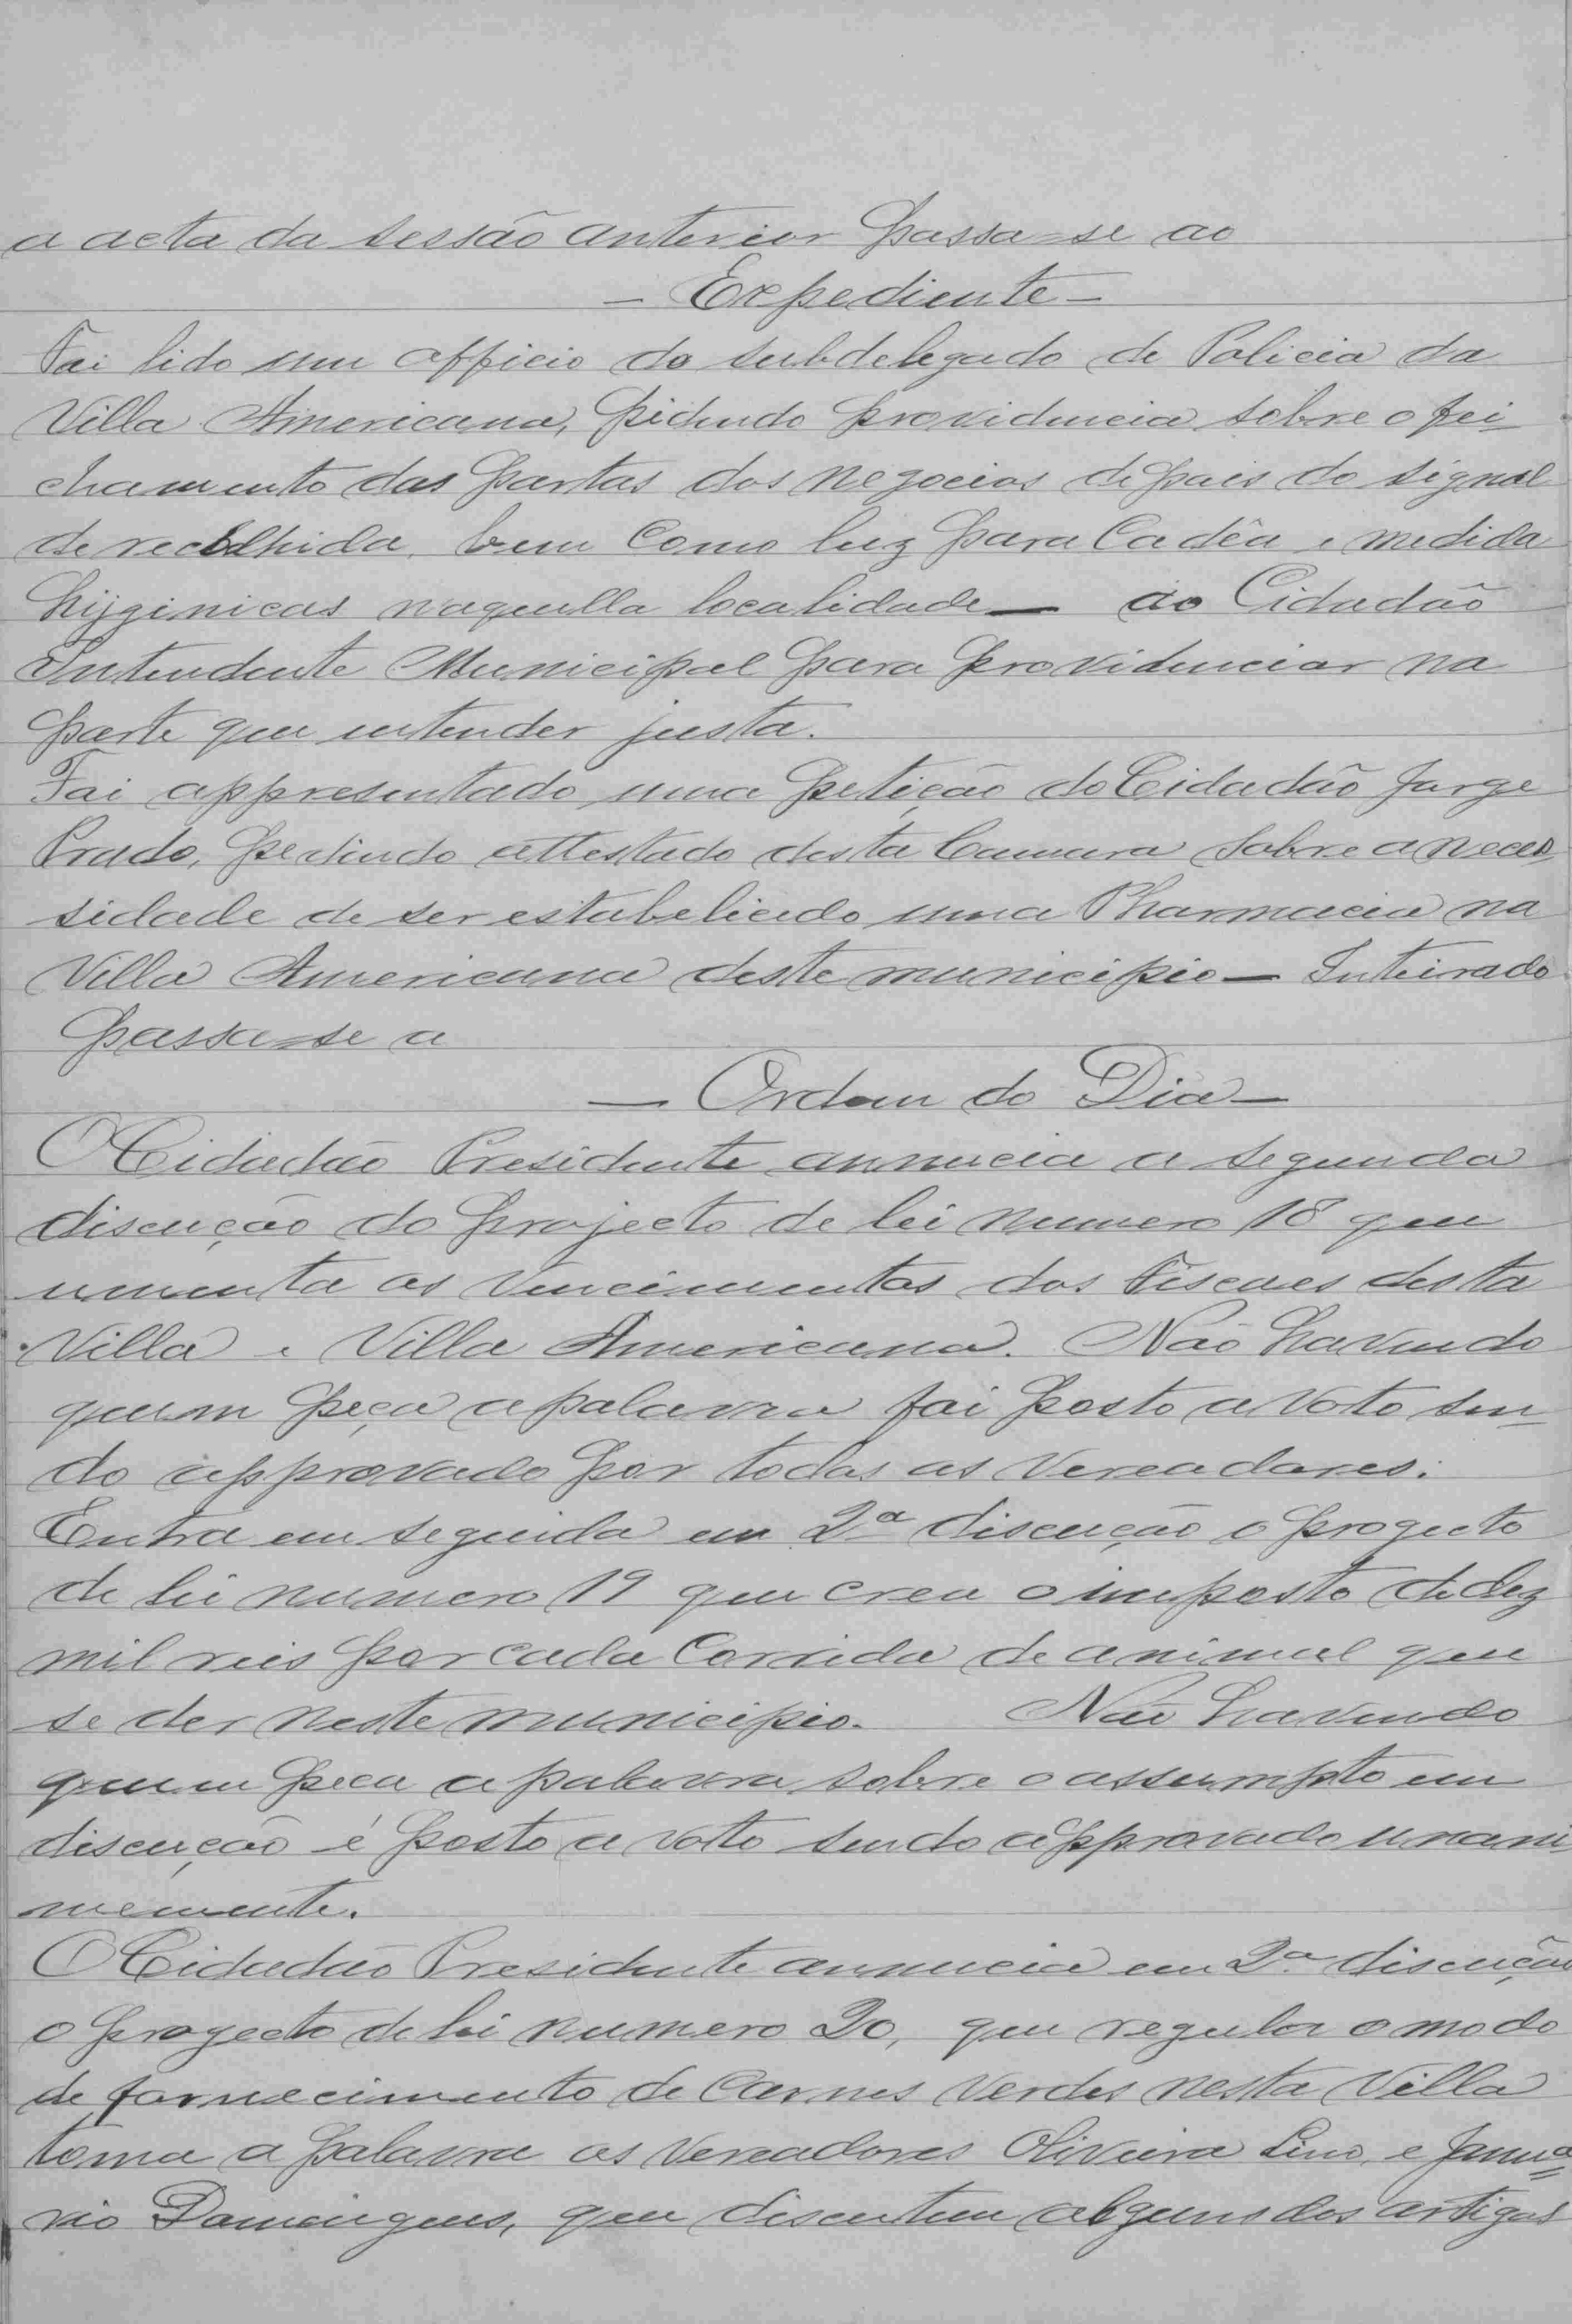 a acta da sessão anterior passa-se ao
— Expediente —
Foi lido um officio do subdelegado de Policia da
Villa Americana, pidindo providencia sobre o fei-
chamento das portas dos negocios depois do signal
de recolhida, bem como luz para Cadêa e medida
higginicas naquella localidade — ao Cidadão
Intendente Municipal para providenciar na
parte que entender justa.
Foi appresentado uma petição do Cidadão Jorge
Prado, pedindo attestado desta Camara sobre a neces-
sidade de ser estabelicido uma Pharmacia na
Villa Americana deste municipio — Inteirado
passa-se a
— Ordem do Dia —
O Cidadão Presidente annucia a segunda
discução do projecto de lei numero 18 que
umenta os vencimentos dos Fiscaes desta
Villa e Villa Americana. Não havendo
quem peça a palavra foi posto a voto sen-
do approvado por todos os Vereadores.
Entra em seguida em 2ª discução o progecto
de lei numero 19 que crea o imposto de dez
mil reis por cada corrida de animal que
se der neste municipio. Não havendo
quem peca a palavra sobre o assumpto em
discução é posto a voto sendo approvado unani-
memente.
O Cidadão Presidente annucia em 2ª discução
o progecto de lei numero 20, que regular o modo
de fornecimento de Carnes Verdes nesta Villa
toma a palavra os Vereadores Oliveira Lino, e Janua=
rio Domingues, que discutem alguns dos artigos